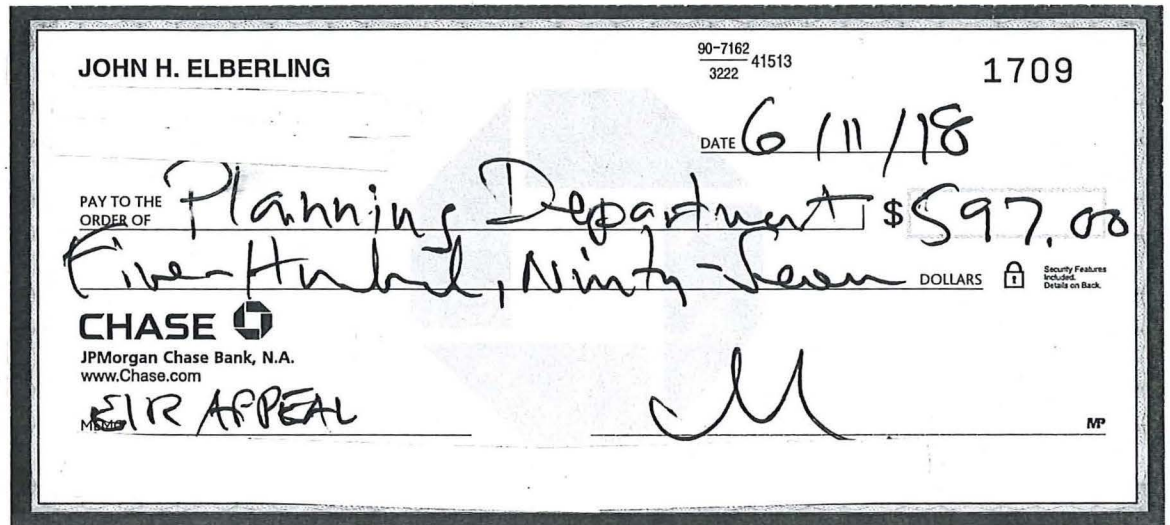 JOHN H. ELBERLING
90-7162
3222
41513
1709
DATE 6/11/18
PAY TO THE
ORDER OF Planning Department $ 597.00
Five Hundred, Ninty-Seven DOLLARS
Security Features
Included.
Details on Back.
CHASE
JPMorgan Chase Bank, N.A.
www.Chase.com
MEMO EIR APPEAL
MP